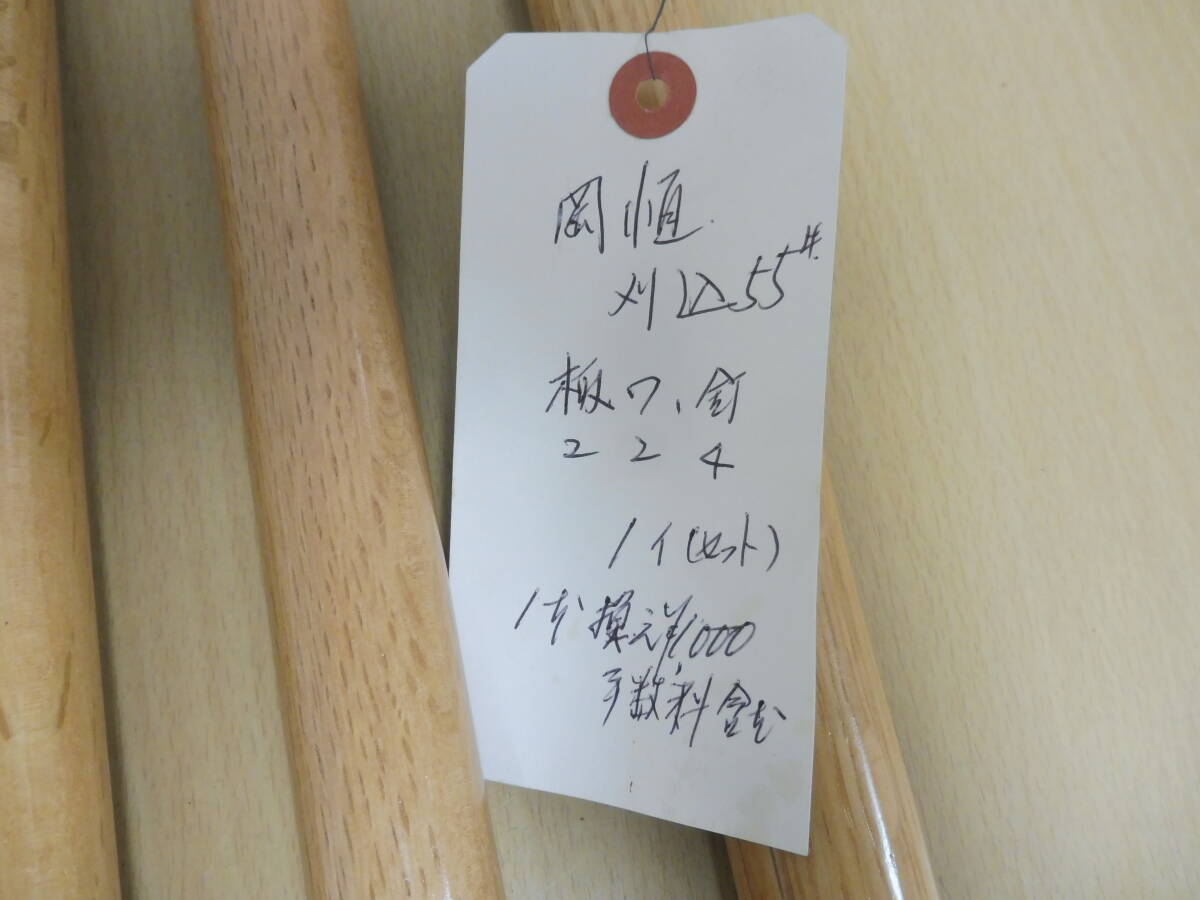 岡恒
刈込55
板ワ、釘
2 2 4
1イ(セット)
換え¥1000
手数料含む